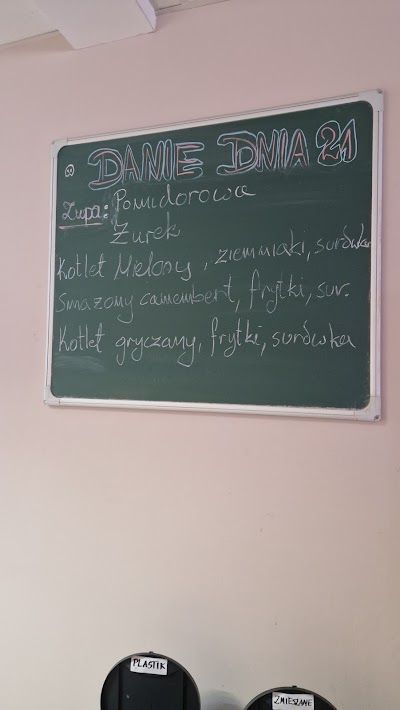 DANIE DNIA 21
Zupa: Pomidorowa
Żurek
Kotlet Mielony, ziemniaki, surówka
Smażony camembert, frytki, sur.
Kotlet gryczany, frytki, surówka
PLASTIK
ZMIESZANE